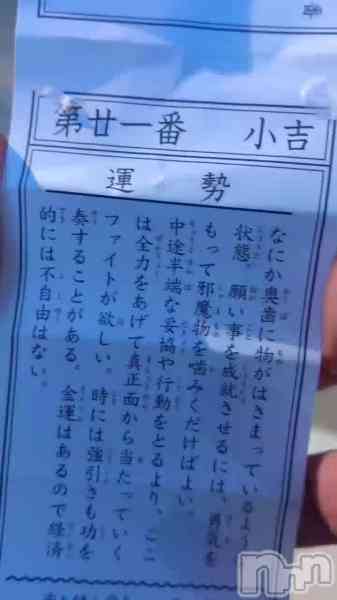 第廿一番 小吉
運勢
なにか奥歯に物がはさまっているよう
状態。願い事を成就させるには、勇気を
もって邪魔物を噛みくだけばよい。
中途半端な妥協や行動をとるより、ここ
は全力をあげて真正面から当たっていく
ファイトが欲しい。時には強引さも功を
奏することがある。金運はあるので経済
的には不自由はない。